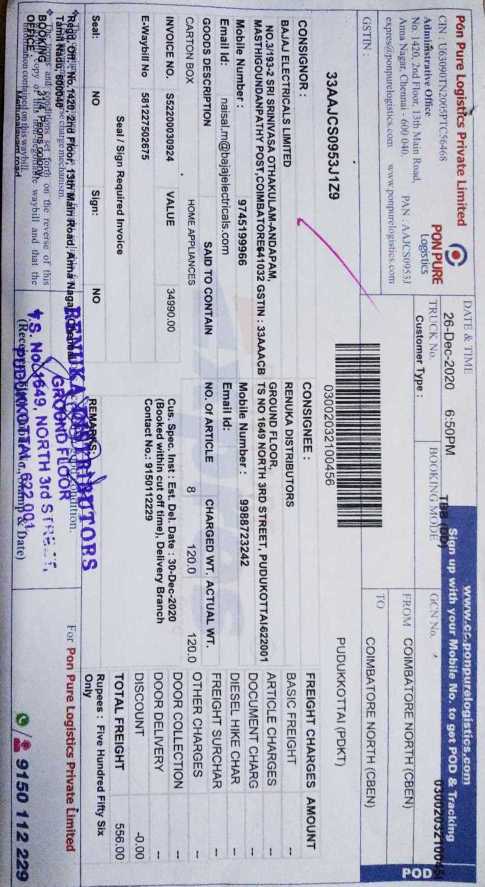 Pon Pure Logistics Private Limited
CIN : U63090TN2005PTC56468
Administrative Office
No. 1420, 2nd Floor, 13th Main Road,
Anna Nagar, Chennai - 600 040.
PAN : AAJCS0953J
expres@ponpurelogistics.com www.ponpurelogistics.com
GSTIN :
33AAJCS0953J1Z9
PON PURE
Logistics
DATE & TIME
26-Dec-2020 6:50PM
TRUCK No.
Customer Type :
BOOKING MODE
TBB (DD)
www.cc.ponpurelogistics.com
Sign up with your Mobile No. to get POD & Tracking
GCN No.
FROM COIMBATORE NORTH (CBEN)
COIMBATORE NORTH (CBEN)
TO
PUDUKKOTTAI (PDKT)
POD
03002032100456
CONSIGNOR :
BAJAJ ELECTRICALS LIMITED
NO.3/193-2 SRI SRINIVASA OTHAKULAM-ANDAPAM,
MASTHIGOUNDANPATHY POST,COIMBATORE641032 GSTIN : 33AAACB
Mobile Number : 9745199966
Email Id: naisal.m@bajajelectricals.com
CONSIGNEE :
RENUKA DISTRIBUTORS
GROUND FLOOR,
TS NO 1649 NORTH 3RD STREET, PUDUKOTTAI622001
Mobile Number : 9988723242
Email Id:
GOODS DESCRIPTION SAID TO CONTAIN NO. Of ARTICLE CHARGED WT. ACTUAL WT.
CARTON BOX HOME APPLIANCES 8 120.0 120.0
INVOICE NO. S52200030924 VALUE 34990.00
E-Waybill No 581227502675
Cus. Spec. Inst : Est. Del. Date : 30-Dec-2020
(Booked within cut off time), Delivery Branch
Contact No.: 9150112229
Seal / Sign Required Invoice
Seal: NO Sign: NO
REMARKS:
FREIGHT CHARGES AMOUNT
BASIC FREIGHT --
ARTICLE CHARGES --
DOCUMENT CHARG --
DIESEL HIKE CHAR --
FREIGHT SURCHAR --
OTHER CHARGES --
DOOR COLLECTION --
DOOR DELIVERY --
DISCOUNT -0.00
TOTAL FREIGHT 556.00
Rupees : Five Hundred Fifty Six
Only
Regd. Off.: No. 1420, 2nd Floor, 13th Main Road, Anna Nagar
Tamil Nadu, 600040
The terms and conditions set forth on the reverse of this
BOOKING
OFFICE
RENUKA DISTRIBUTORS
GROUND FLOOR
T.S. No. 1649, NORTH 3rd STREET,
PUDUKKOTTAI 622 001.
For Pon Pure Logistics Private Limited
9150 112 229